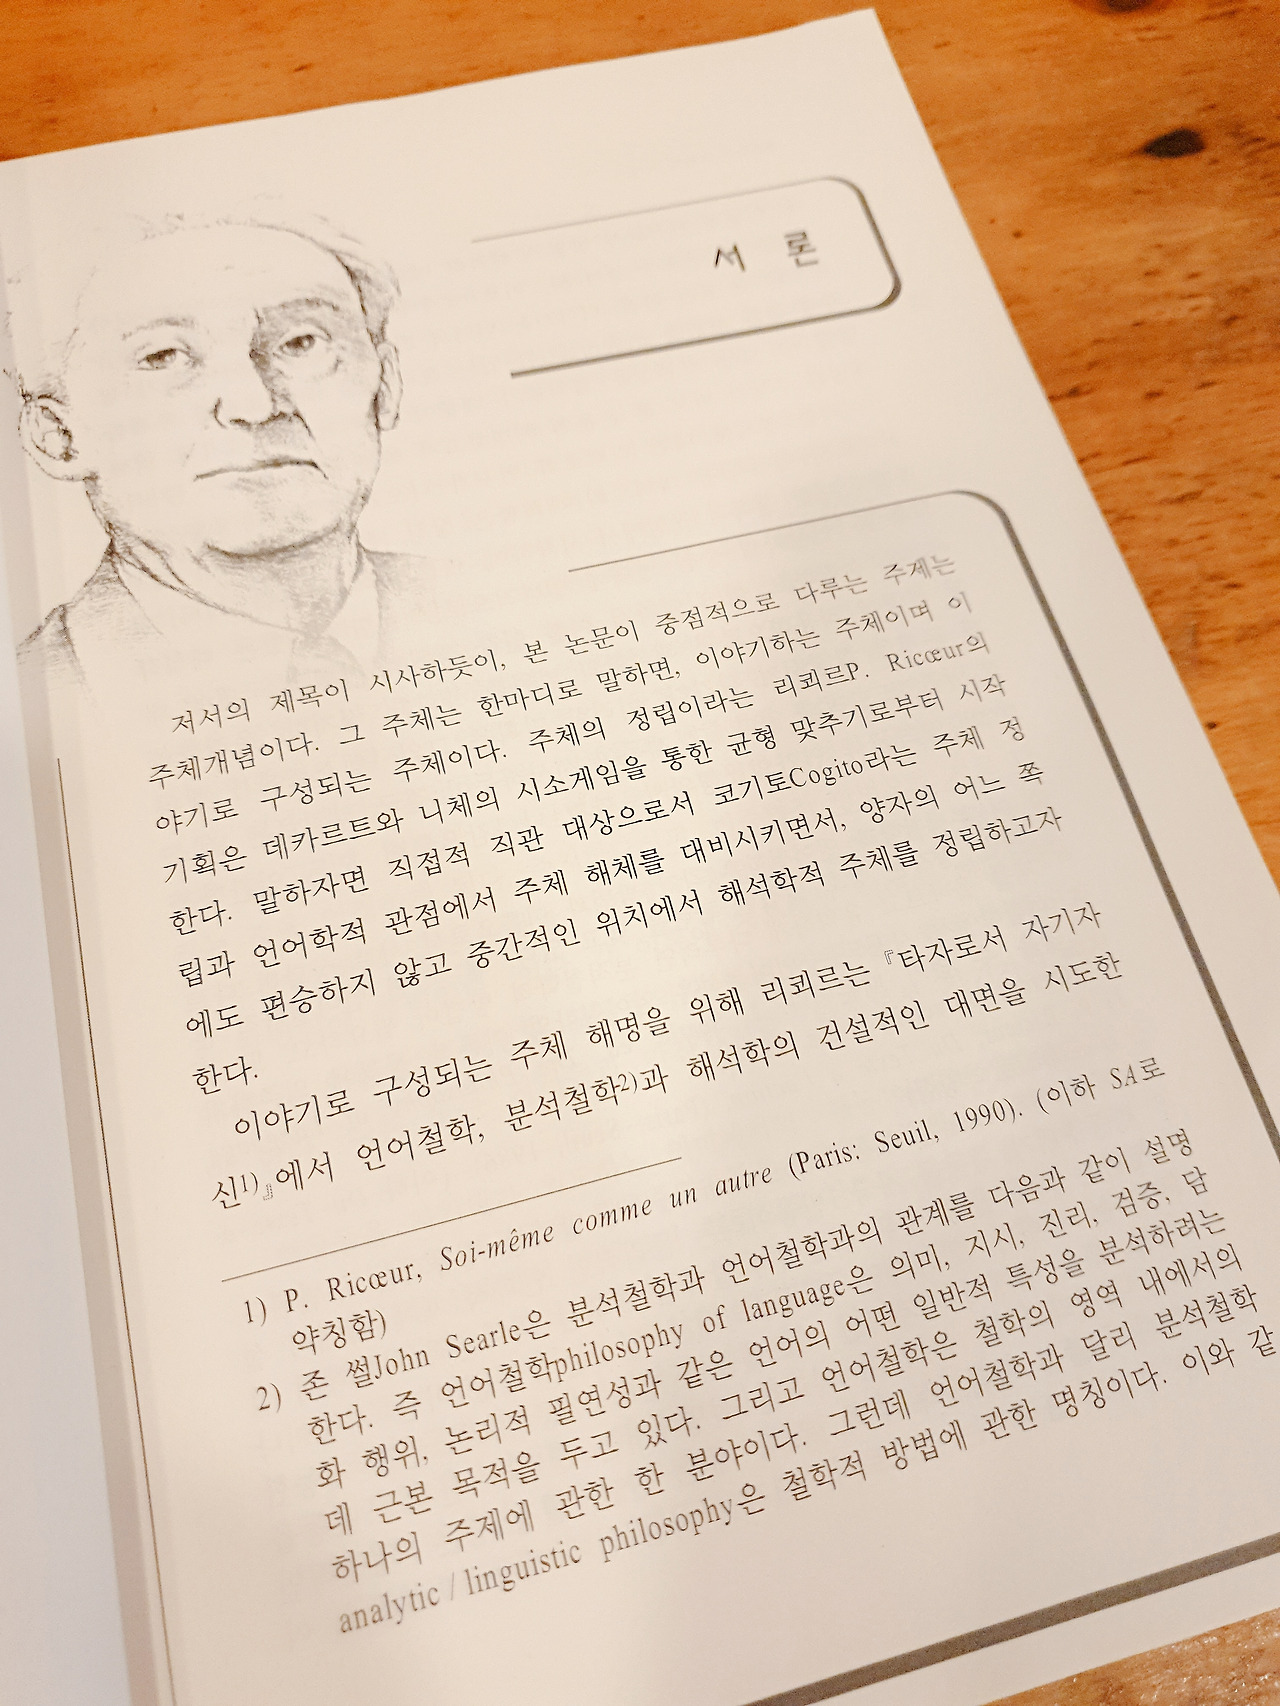 서 론
저서의 제목이 시사하듯이, 본 논문이 중점적으로 다루는 주제는
주체개념이다. 그 주체는 한마디로 말하면, 이야기하는 주체이며 이
야기로 구성되는 주체이다. 주체의 정립이라는 리쾨르P. Ricœur의
기획은 데카르트와 니체의 시소게임을 통한 균형 맞추기로부터 시작
한다. 말하자면 직접적 직관 대상으로서 코기토Cogito라는 주체 정
립과 언어학적 관점에서 주체 해체를 대비시키면서, 양자의 어느 쪽
에도 편승하지 않고 중간적인 위치에서 해석학적 주체를 정립하고자
한다.
이야기로 구성되는 주체 해명을 위해 리쾨르는 『타자로서 자기자
신1)』에서 언어철학, 분석철학2)과 해석학의 건설적인 대면을 시도한
1) P. Ricœur, Soi-même comme un autre (Paris: Seuil, 1990). (이하 SA로
약칭함)
2) 존 썰John Searle은 분석철학과 언어철학과의 관계를 다음과 같이 설명
한다. 즉 언어철학philosophy of language은 의미, 지시, 진리, 검증, 담
화 행위, 논리적 필연성과 같은 언어의 어떤 일반적 특성을 분석하려는
데 근본 목적을 두고 있다. 그리고 언어철학은 철학의 영역 내에서의
하나의 주제에 관한 한 분야이다. 그런데 언어철학과 달리 분석철학
analytic / linguistic philosophy은 철학적 방법에 관한 명칭이다. 이와 같